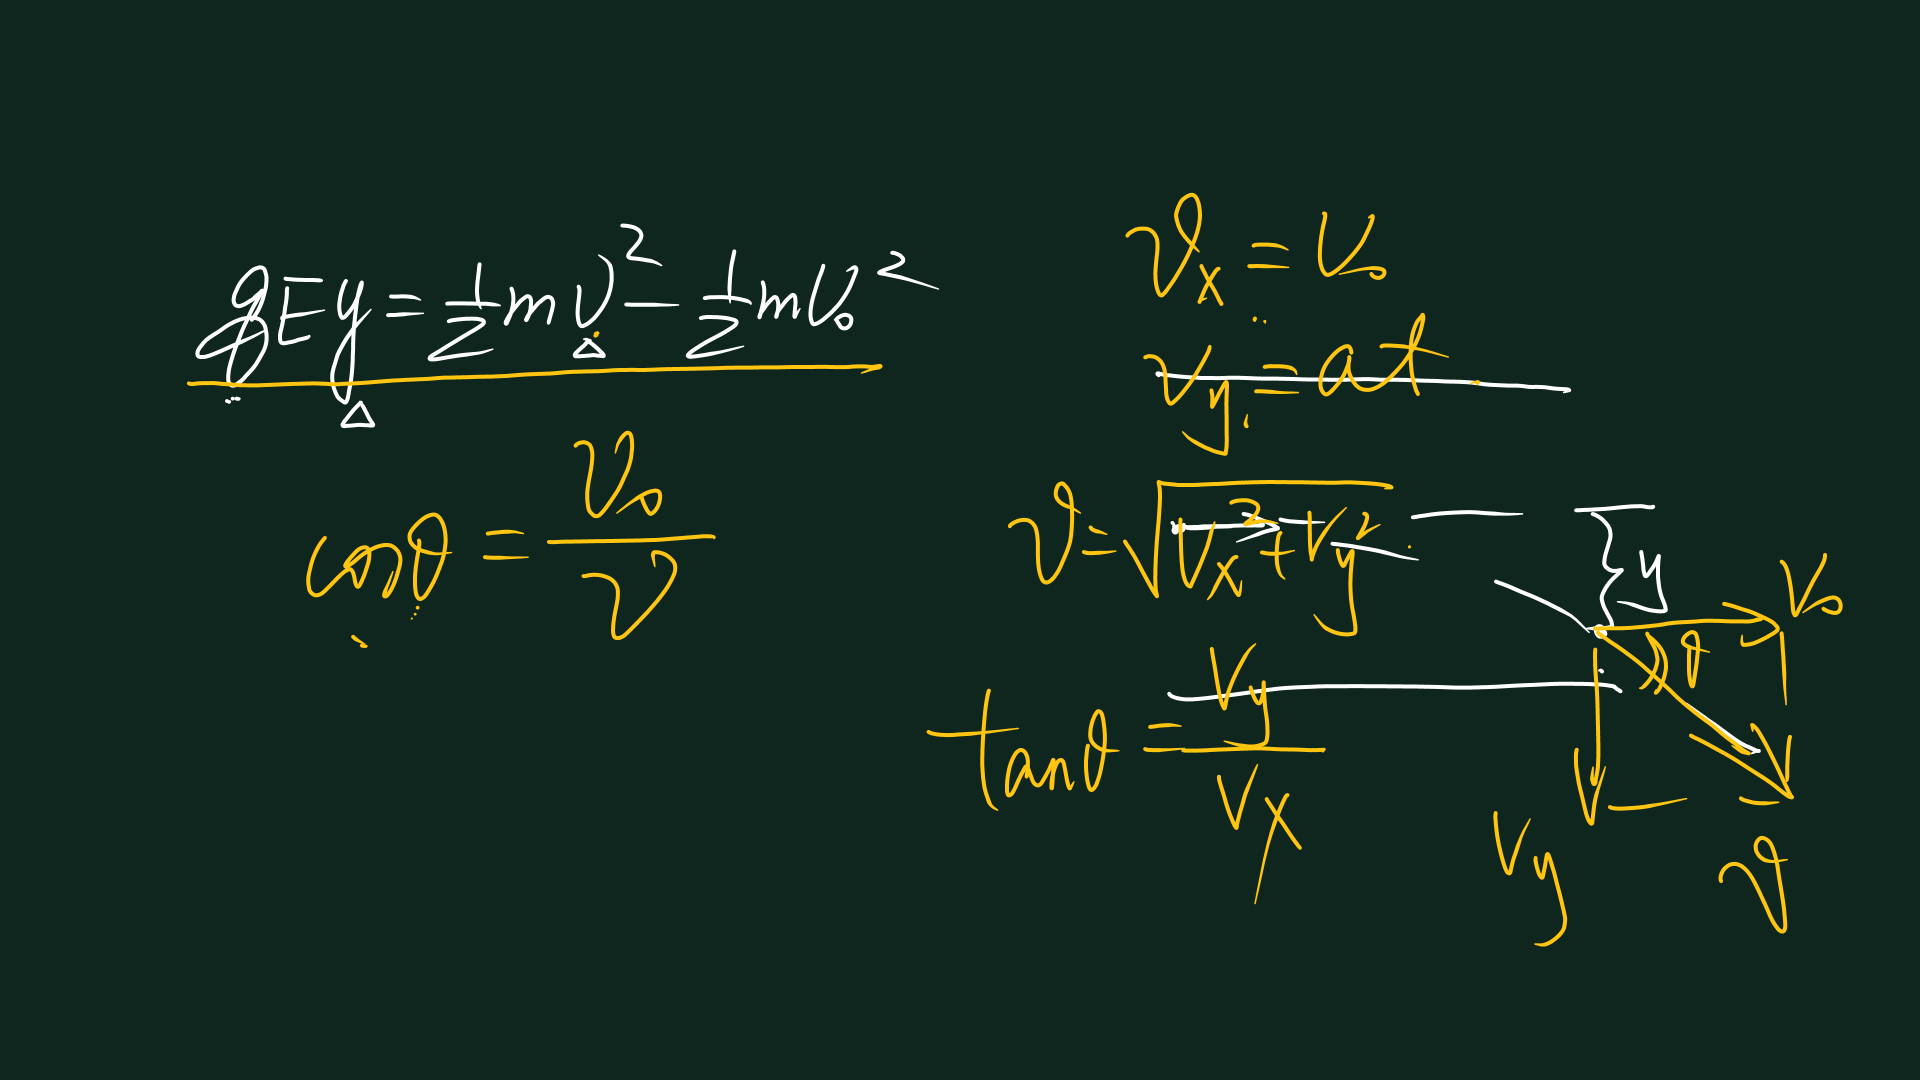 qEy = 1/2 mv² - 1/2 mv₀²
cosθ = v₀/v
vₓ = v₀
v_y = at
v = √(vₓ² + v_y²)
tanθ = v_y/vₓ
y
v₀
θ
v_y
v